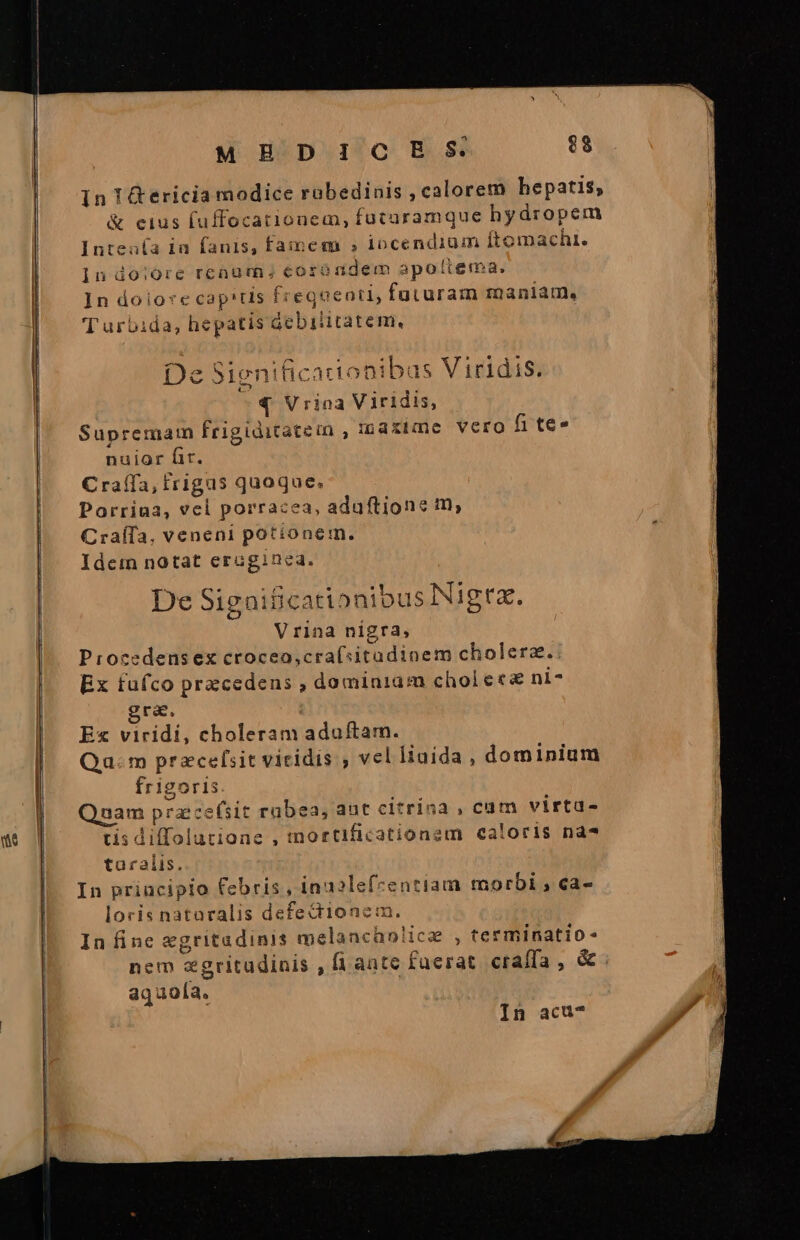 MEDICES. 88
In Ictericia modice rubedinis, calorem hepatis,
& eius ſuffocationem, futuramque hydropem
Intenſa in ſanis, famem, incendium ſtomachi.
In dolore renum, eorundem apoſtema.
In dolore capitis frequenti, futuram maniam.
Turbida, hepatis debilitatem.
De Significationibus Viridis.
¶ Vrina Viridis,
Supremam frigiditatem, maxime vero ſi te-
nuior ſit.
Craſſa, frigus quoque.
Porrina, vel porracea, aduſtionem,
Craſſa, veneni potionem.
Idem notat eruginea.
De Significationibus Nigræ.
Vrina nigra,
Procedens ex croceo, craſsitudinem choleræ.
Ex fuſco præcedens, dominium choleræ ni-
græ.
Ex viridi, choleram aduſtam.
Quam præceſsit viridis, vel liuida, dominium
frigoris.
Quam præceſsit rubea, aut citrina, cum virtu-
tis diſſolutione, mortificationem caloris na-
turalis.
In principio febris, inualeſcentiam morbi, ca-
loris naturalis defectionem.
In fine ægritudinis melancholicæ, terminatio-
nem ægritudinis, ſi ante fuerat craſſa, &
aquoſa.
In acu-